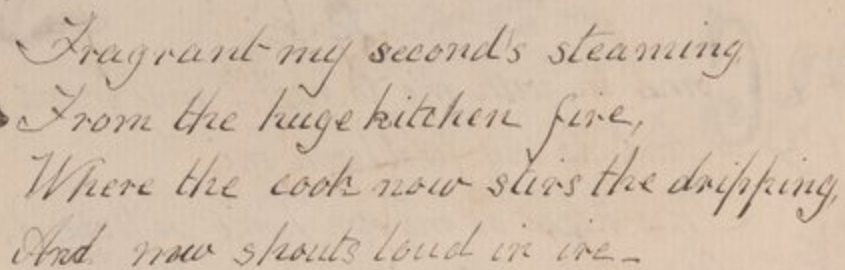 Fragrant my second's steaming
From the huge kitchen fire,
Where the cook now stirs the dripping,
And now shouts loud in ire_